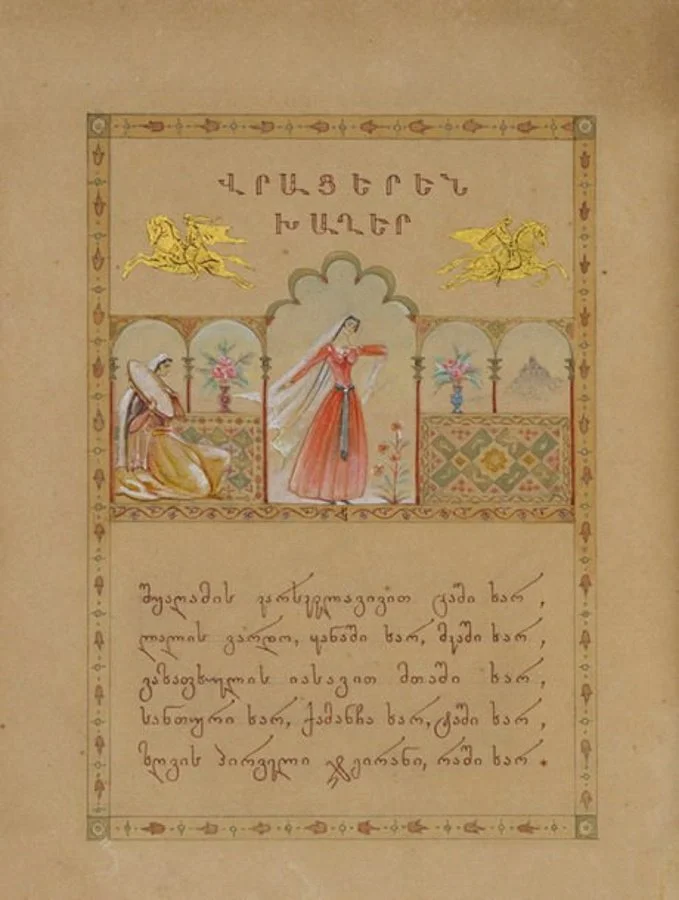 ՎՐԱՑԵՐԵՆ
ԽԱՂԵՐ
შუაღამის ვარსკვლავივით ცაში ხარ,
ლალის ვარდო, ყანაში ხარ, მკაში ხარ,
გაზაფხულის იასავით მთაში ხარ,
სანთური ხარ, ქამანჩა ხარ, ტაში ხარ,
ზღვის პირველი ჯეირანი, რაში ხარ.